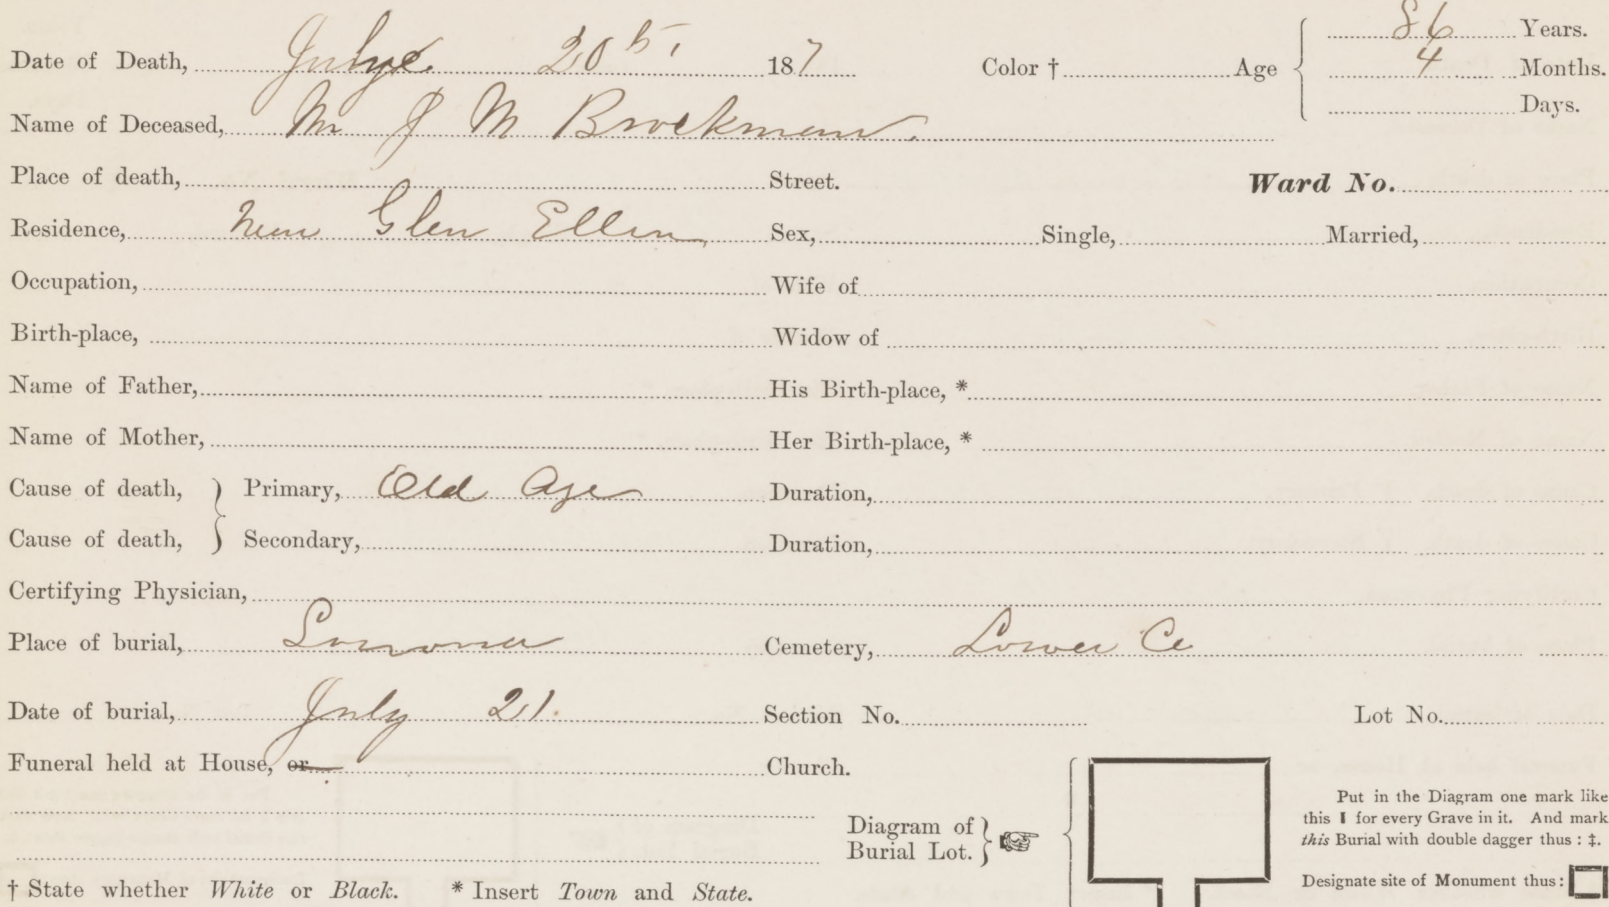 86 Years.
Date of Death, July 20th, 187 Color † Age 4 Months.
Days.
Name of Deceased, Mr J M Brockman
Place of death, Street. Ward No.
Residence, Near Glen Ellen Sex, Single, Married,
Occupation, Wife of
Birth-place, Widow of
Name of Father, His Birth-place, *
Name of Mother, Her Birth-place, *
Cause of death, } Primary, Old Age Duration,
Cause of death, } Secondary, Duration,
Certifying Physician,
Place of burial, Sonoma Cemetery, Lower Ce
Date of burial, July 21. Section No. Lot No.
Funeral held at House, or Church.
Diagram of Burial Lot. }
Put in the Diagram one mark like
this ❙ for every Grave in it. And mark
this Burial with double dagger thus : ‡.
Designate site of Monument thus :
† State whether White or Black. * Insert Town and State.